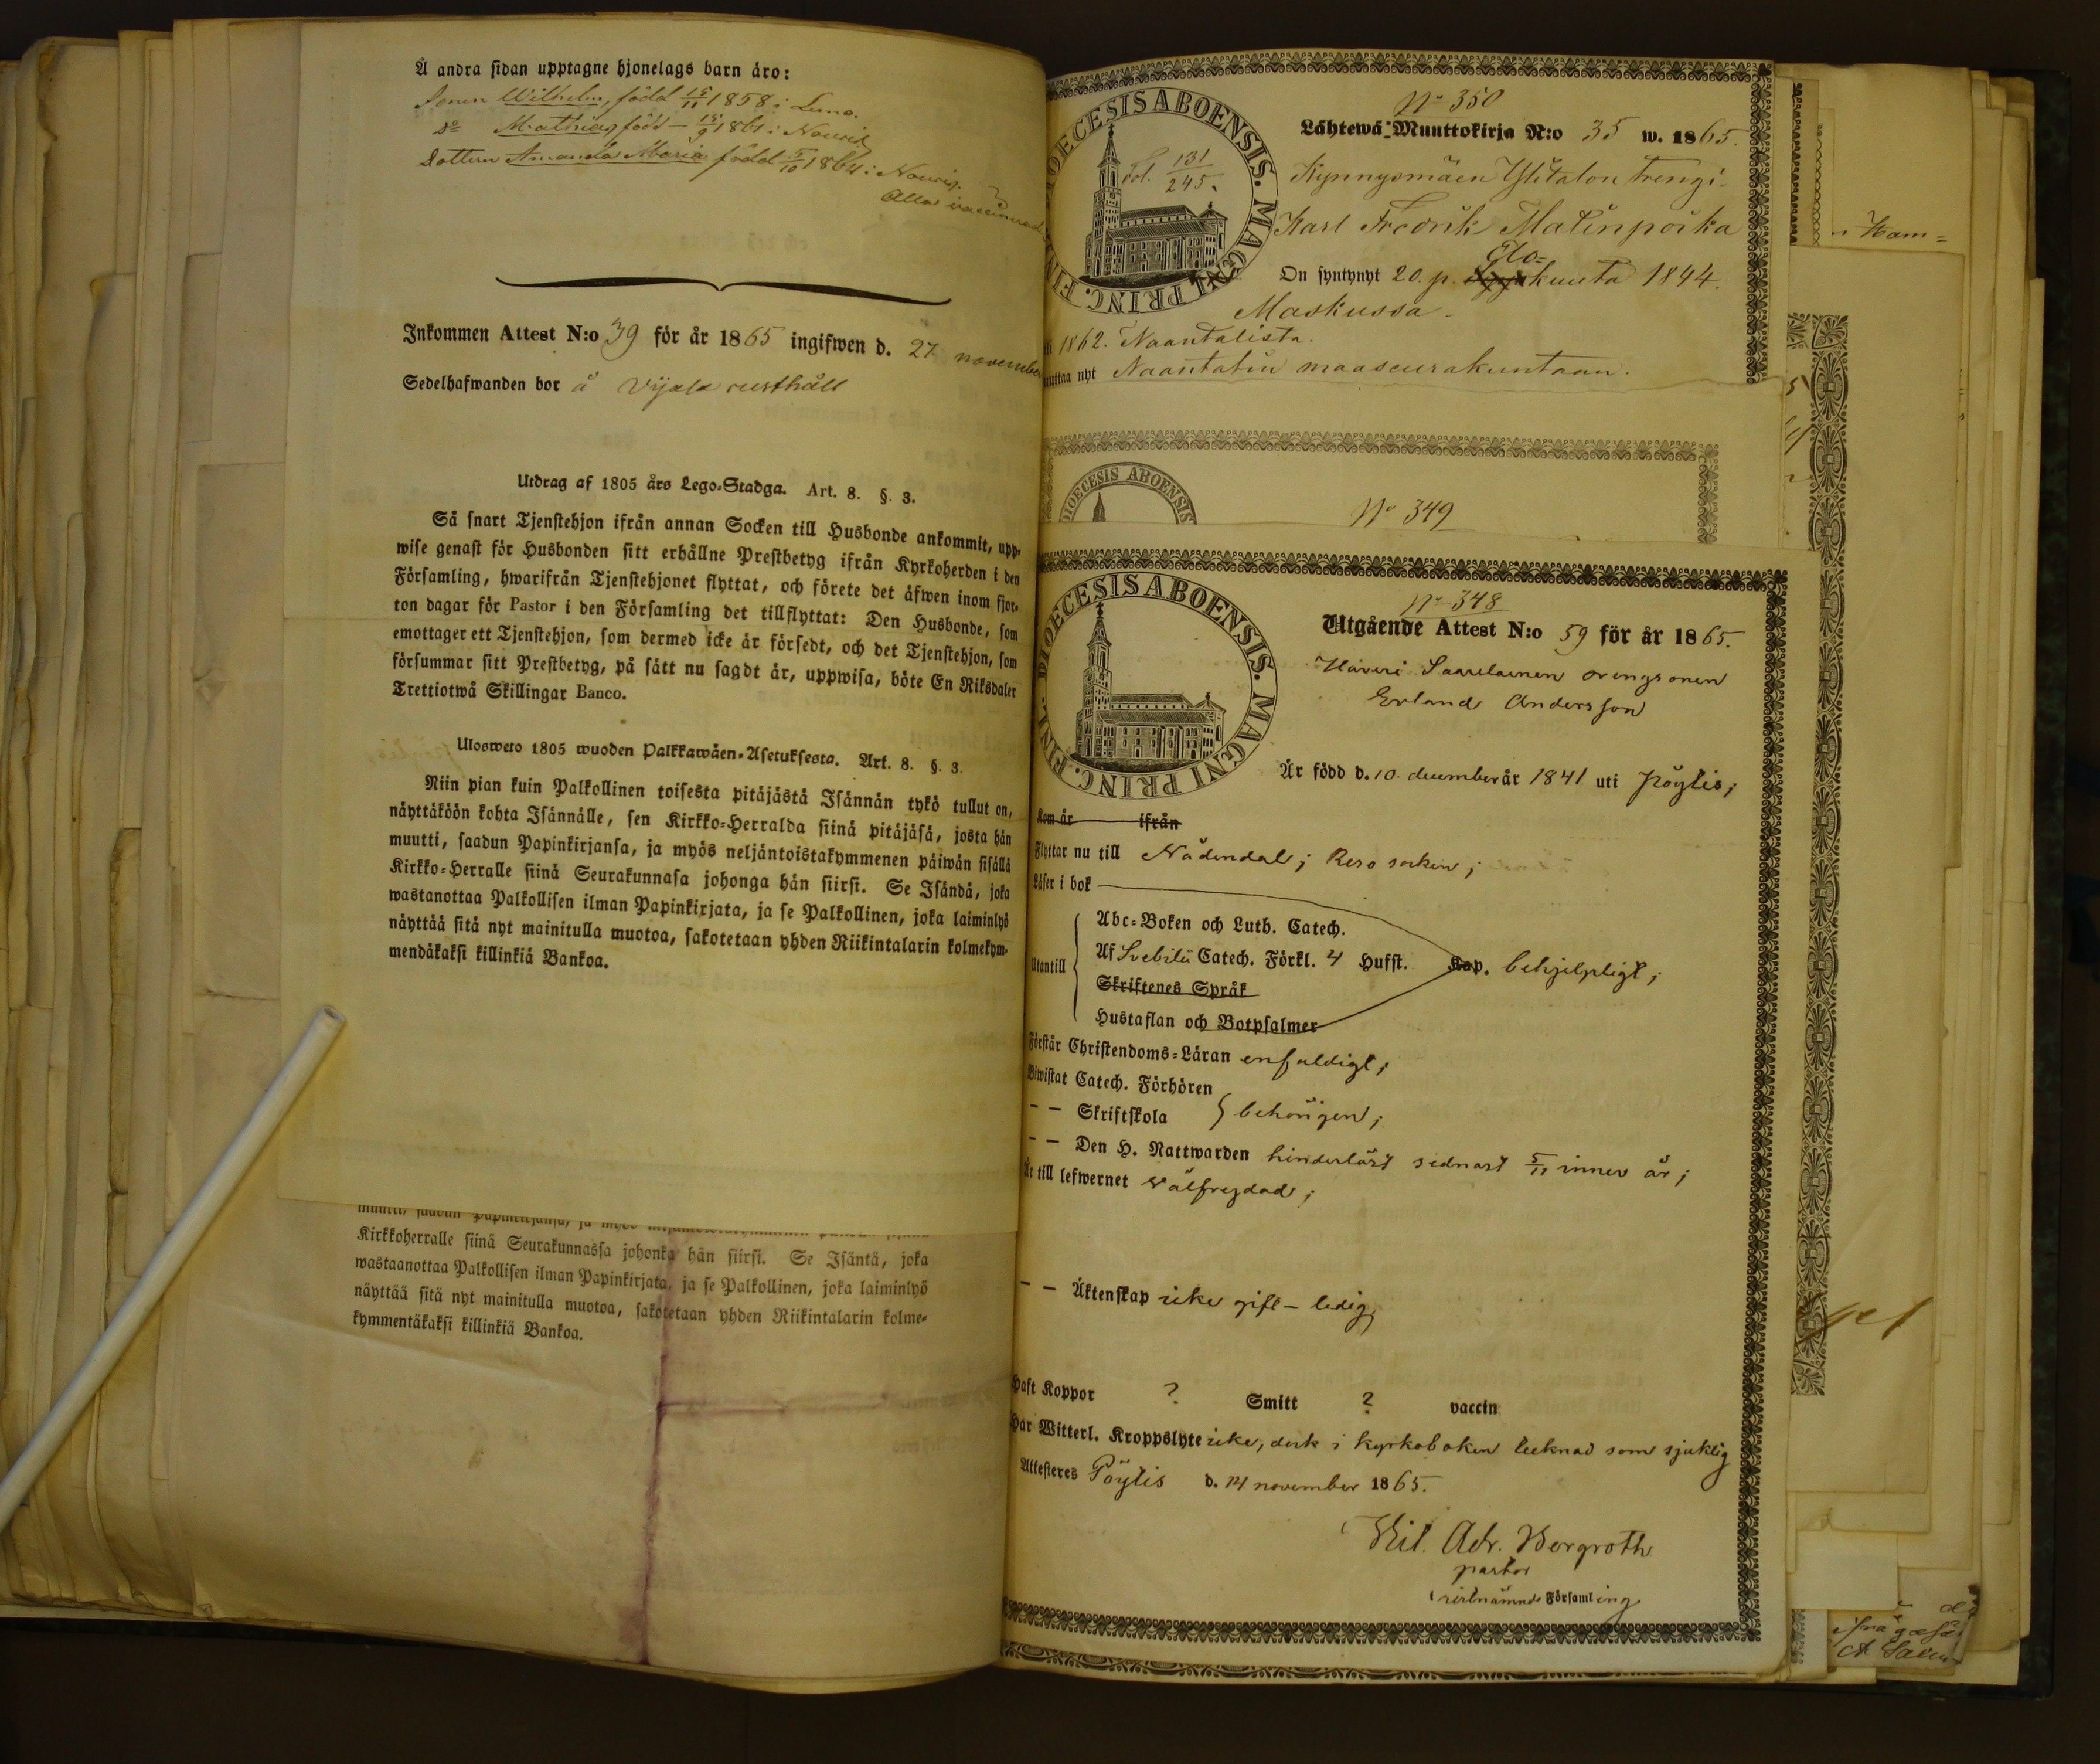 Å andra sidan upptagne hjonelags barn äro:
Sonen Wilhelm, född 15/11 1858 i Lemo.
Do Mathias, född 18/9 1861 i Nousis
Dottern Amanda Maria född 5/10 1864 i Nousis.
Alla vaccinerade
Inkommen Attest N:o 39 för år 1865 ingifwen d. 27 november
Sedelhafwanden bor å Vijala rusthåll
Utdrag af 1805 års Lego-Stadga. Art. 8. §. 3.
Så snart Tjenstehjon ifrån annan Socken till Husbonde ankommit, upp-
wise genast för Husbonden sitt erhållne Prestbetyg ifrån Kyrkoherden i den
Församling, hwarifrån Tjenstehjonet flyttat, och förete det äfwen inom fjor-
ton dagar för Pastor i den Församling det tillflyttat: Den Husbonde, som
emottager ett Tjenstehjon, som dermed icke är försedt, och det Tjenstehjon, som
försummar sitt Prestbetyg, på sätt nu sagdt är, uppwisa, böte En Riksdaler
Trettiotwå Skillingar Banco.
Ulosweto 1805 wuoden Palkkawäen-Asetuksesta. Art. 8. §. 3.
Niin pian kuin Palkollinen toisesta pitäjästä Isännän tykö tullut on,
näyttäköön kohta Isännälle, sen Kirkko-Herralda siinä pitäjäsä, josta hän
muutti, saadun Papinkirjansa, ja myös neljäntoistakymmenen päiwän sisällä
Kirkko-Herralle siinä Seurakunnasa johonga hän siirsi. Se Isändä, joka
wastanottaa Palkollisen ilman Papinkirjata, ja se Palkollinen, joka laiminlyö
näyttää sitä nyt mainitulla muotoa, sakotetaan yhden Riikintalarin kolmekym-
mendäkaksi killinkiä Bankoa.
Kirkkoherralle siinä Seurakunnassa johonka hän siirsi. Se Isäntä, joka
wastaanottaa Palkollisen ilman Papinkirjata, ja se Palkollinen, joka laiminlyö
näyttää sitä nyt mainitulla muotoa, sakotetaan yhden Riikintalarin kolme-
kymmentäkaksi killinkiä Bankoa.
No 350
Lähtewä Muuttokirja N:o 35 w. 1865.
DIOECESIS ABOENSIS. MAGNI PRINC. FINL.
Fol. 131/245.
Kynnysmäen Ylitalon trengi
Karl Fredrik Matinpoika
On syntynyt 20. p. Elo-kuuta 1844.
Maskussa.
1862. Naantalista.
muuttaa nyt Naantalin maaseurakuntaan.
DIOECESIS ABOENSIS
No 349
DIOECESIS ABOENSIS. MAGNI PRINC. FINL.
No 348
Utgående Attest N:o 59 för år 1865.
Haveri Saarelainen drengsonen
Erland Andersson
Är född d. 10 december år 1841 uti Pöytis;
Kom år ifrån
Flyttar nu till Nådendal; Reso socken;
Läser i bok
Abc-Boken och Luth. Catech.
Utantill Af Svebilii Catech. Förkl. 4 Hufst. Kap. behjelpligt;
Skriftenes Språk
Hustaflan och Botpsalmer
Förstår Christendoms-Läran enfaldigt;
Biwistat Catech. Förhören
— — Skriftskola } behörigen;
— — Den H. Nattwarden hinderlöst sednast 5/11 innev år;
Är till lefwernet välfrejdad;
— — Äktenskap icke gift – ledig;
Haft Koppor ? Smitt ? vaccin
Har Witterl. Kroppslyte icke, dock i kyrkoboken tecknad som sjuklig
Attesteres Pöytis d. 14 november 1865.
Adr. Bergroth
pastor
i sistnämnde Församling